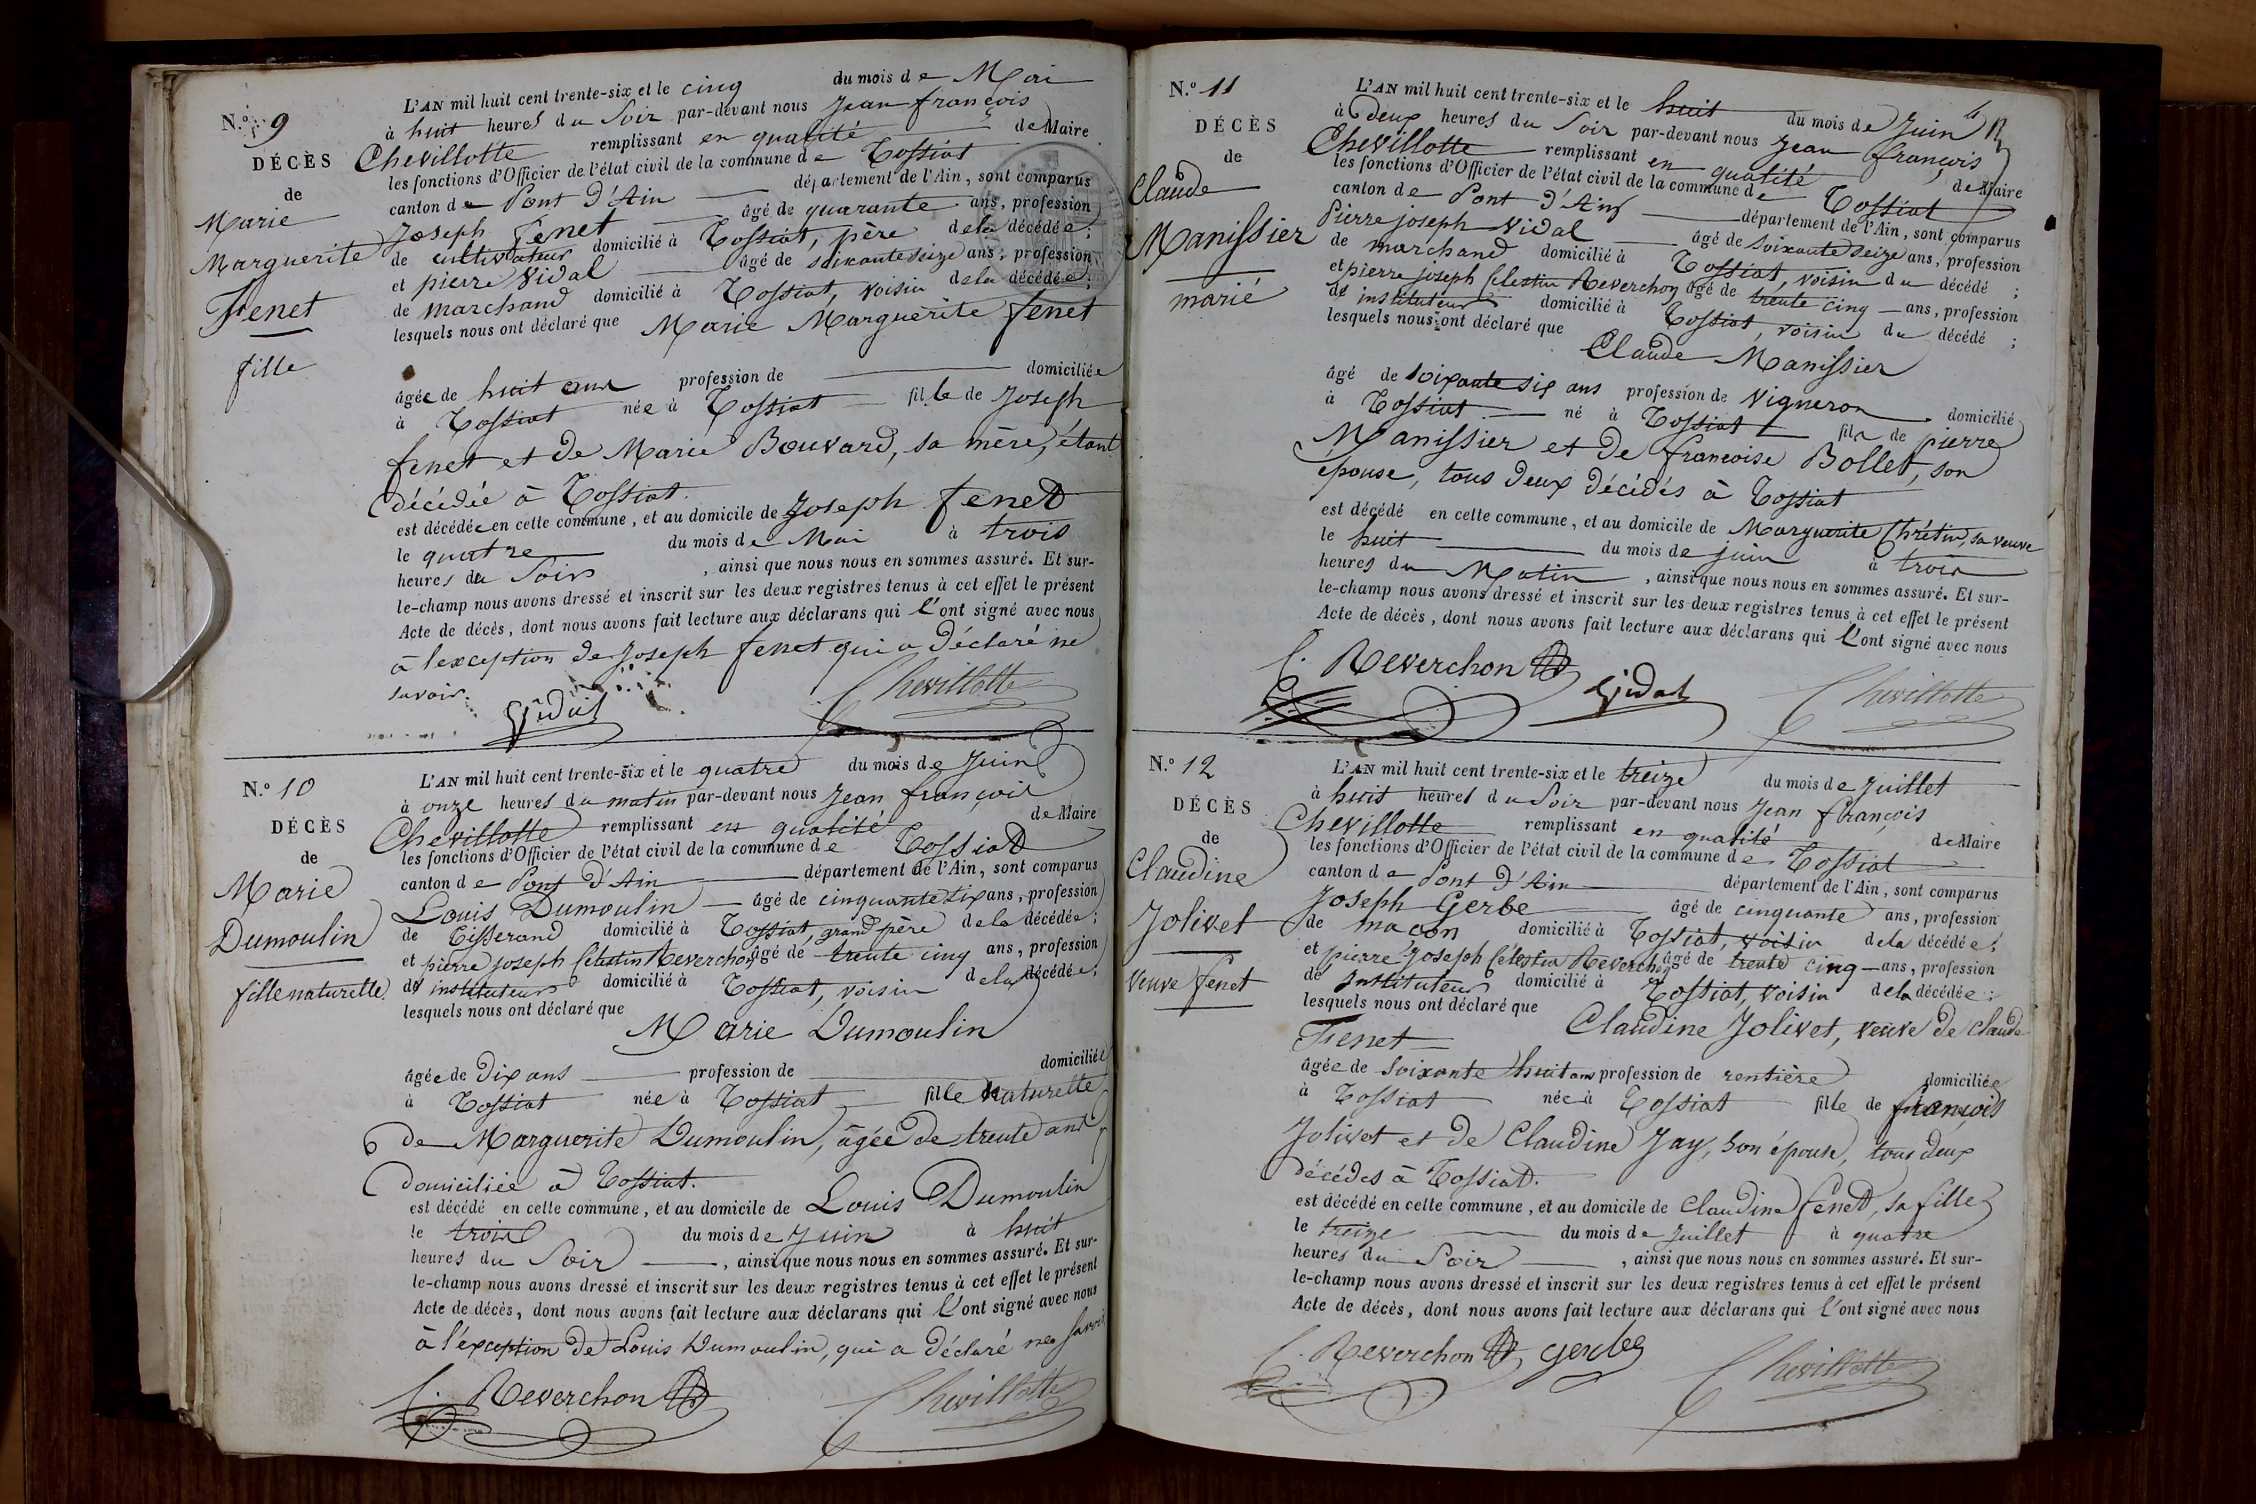 N.º 9
DÉCÈS
de
Marie
Marguerite
Fenet
fille
L'AN mil huit cent trente-six et le cinq du mois de Mai
à huit heures du Soir par-devant nous Jean françois
Chevillotte remplissant en qualité de Maire
les fonctions d'Officier de l'état civil de la commune de Tossiat
canton de Pont d'Ain département de l'Ain, sont comparus
Joseph fenet âgé de quarante ans, profession
de cultivateur domicilié à Tossiat, père de la décédée;
et pierre Vidal âgé de soixante seize ans, profession
de marchand domicilié à Tossiat, voisin de la décédée;
lesquels nous ont déclaré que Marie Marguerite fenet
âgée de huit ans profession de domiciliée
à Tossiat née à Tossiat fille de Joseph
fenet et de Marie Bouvard, sa mère, étant
décédée à Tossiat.
est décédée en cette commune, et au domicile de Joseph fenet
le quatre du mois de Mai à trois
heures du Soir, ainsi que nous nous en sommes assuré. Et sur-
le-champ nous avons dressé et inscrit sur les deux registres tenus à cet effet le présent
Acte de décès, dont nous avons fait lecture aux déclarans qui l'ont signé avec nous
à l'exception de Joseph fenet qui a déclaré ne
savoir.
Vidal Chevillotte
N.º 10
DÉCÈS
de
Marie
Dumoulin
fille naturelle
L'AN mil huit cent trente-six et le quatre du mois de Juin
à onze heures du matin par-devant nous Jean françois
Chevillotte remplissant en qualité de Maire
les fonctions d'Officier de l'état civil de la commune de Tossiat
canton de Pont d'Ain département de l'Ain, sont comparus
Louis Dumoulin âgé de cinquante six ans, profession
de Tisserand domicilié à Tossiat, grand père de la décédée;
et pierre joseph Célestin Reverchon âgé de trente cinq ans, profession
de instituteur domicilié à Tossiat, voisin de la décédée;
lesquels nous ont déclaré que
Marie Dumoulin
âgée de dix ans profession de domiciliée
à Tossiat née à Tossiat fille naturelle
de Marguerite Dumoulin, âgée de trente ans
domiciliée à Tossiat.
est décédé en cette commune, et au domicile de Louis Dumoulin
le trois du mois de Juin à huit
heures du Soir, ainsi que nous nous en sommes assuré. Et sur-
le-champ nous avons dressé et inscrit sur les deux registres tenus à cet effet le présent
Acte de décès, dont nous avons fait lecture aux déclarans qui l'ont signé avec nous
à l'exception de Louis Dumoulin, qui a déclaré ne savoir
C. Reverchon Chevillotte
N.º 11
DÉCÈS
de
Claude
Manissier
marié
L'AN mil huit cent trente-six et le huit du mois de Juin
à deux heures du Soir par-devant nous Jean françois
Chevillotte remplissant en qualité de Maire
les fonctions d'Officier de l'état civil de la commune de Tossiat
canton de Pont d'Ain département de l'Ain, sont comparus
Pierre joseph Vidal âgé de soixante seize ans, profession
de marchand domicilié à Tossiat, voisin du décédé;
et pierre joseph Célestin Reverchon âgé de trente cinq ans, profession
de instituteur domicilié à Tossiat, voisin du décédé;
lesquels nous ont déclaré que
Claude Manissier
âgé de soixante six ans profession de Vigneron domicilié
à Tossiat né à Tossiat fils de pierre
Manissier et de francoise Bollet, son
épouse, tous deux décédés à Tossiat
est décédé en cette commune, et au domicile de Marguerite Chrétin, sa veuve
le huit du mois de juin à trois
heures du Matin, ainsi que nous nous en sommes assuré. Et sur-
le-champ nous avons dressé et inscrit sur les deux registres tenus à cet effet le présent
Acte de décès, dont nous avons fait lecture aux déclarans qui l'ont signé avec nous
C. Reverchon Vidal Chevillotte
N.º 12
DÉCÈS
de
Claudine
Jolivet
veuve fenet
L'AN mil huit cent trente-six et le treize du mois de Juillet
à huit heures du Soir par-devant nous Jean françois
Chevillotte remplissant en qualité de Maire
les fonctions d'Officier de l'état civil de la commune de Tossiat
canton de Pont d'Ain département de l'Ain, sont comparus
Joseph Gerbe âgé de cinquante ans, profession
de macon domicilié à Tossiat, voisin de la décédée;
et pierre Joseph Célestin Reverchon âgé de trente cinq ans, profession
de instituteur domicilié à Tossiat, voisin de la décédée;
lesquels nous ont déclaré que Claudine Jolivet, veuve de claude
Fenet
âgée de soixante huit ans profession de rentière domiciliée
à Tossiat née à Tossiat fille de françois
Jolivet et de Claudine Jay, son épouse, tous deux
décédés à Tossiat.
est décédé en cette commune, et au domicile de Claudine fenet, sa fille
le treize du mois de Juillet à quatre
heures du Soir, ainsi que nous nous en sommes assuré. Et sur-
le-champ nous avons dressé et inscrit sur les deux registres tenus à cet effet le présent
Acte de décès, dont nous avons fait lecture aux déclarans qui l'ont signé avec nous
C. Reverchon gerbe Chevillotte